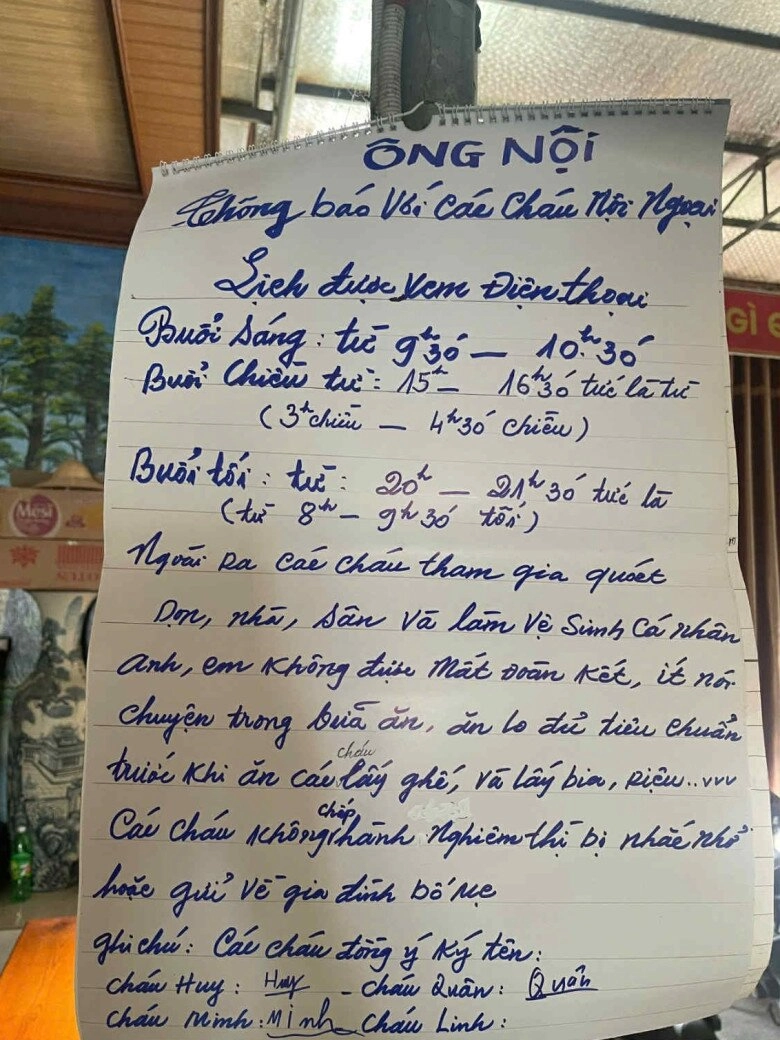 ÔNG NỘI
Thông báo Với Các Cháu Nội Ngoại
Lịch được Xem Điện thoại
Buổi Sáng: từ 9h30' — 10h30'
Buổi Chiều từ: 15h — 16h30' tức là từ
(3h chiều — 4h30' chiều)
Buổi tối: từ: 20h — 21h30' tức là
(từ 8h — 9h30' tối)
Ngoài Ra các cháu tham gia quét
Dọn, nhà, Sân Và làm Vệ Sinh Cá nhân
Anh, em không được Mất Đoàn Kết, ít nói
chuyện trong bữa ăn, ăn lo đủ tiêu chuẩn
trước khi ăn các cháu lấy ghế, và lấy bia, Riệu..vvv
Các cháu không chấp hành Nghiêm thì bị nhắc nhở
hoặc gửi về gia đình bố Mẹ
ghi chú: Các cháu đồng ý Ký tên:
cháu Huy: Huy - cháu Quân: Quân
cháu Minh: Minh Cháu Linh:
GÌ G
Mesi